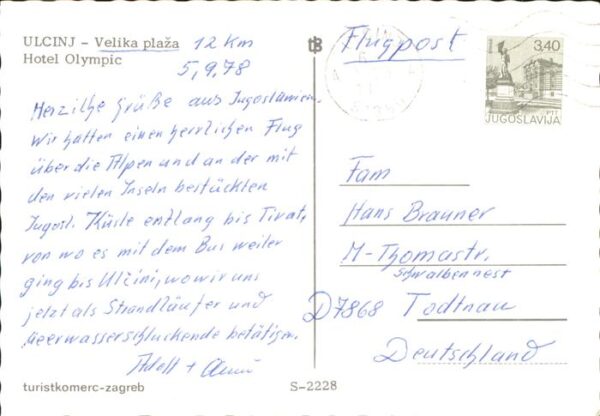 ULCINJ – Velika plaža 12 Km
Hotel Olympic
5,9,78
Herzliche Grüße aus Jugoslawien.
Wir hatten einen herrlichen Flug
über die Alpen und an der mit
den vielen Inseln bestückten
Jugosl. Küste entlang bis Tivat,
von wo es mit dem Bus weiter
ging bis Ulcini, wo wir uns
jetzt als Strandläufer und
Meerwasserschluckende betätigen.
Adolf +
turistkomerc-zagreb
S-2228
Flugpost
3,40
JUGOSLAVIJA
Fam
Hans Brauner
M-Thomastr.
Schwalbennest
D7868 Todtnau
Deutschland